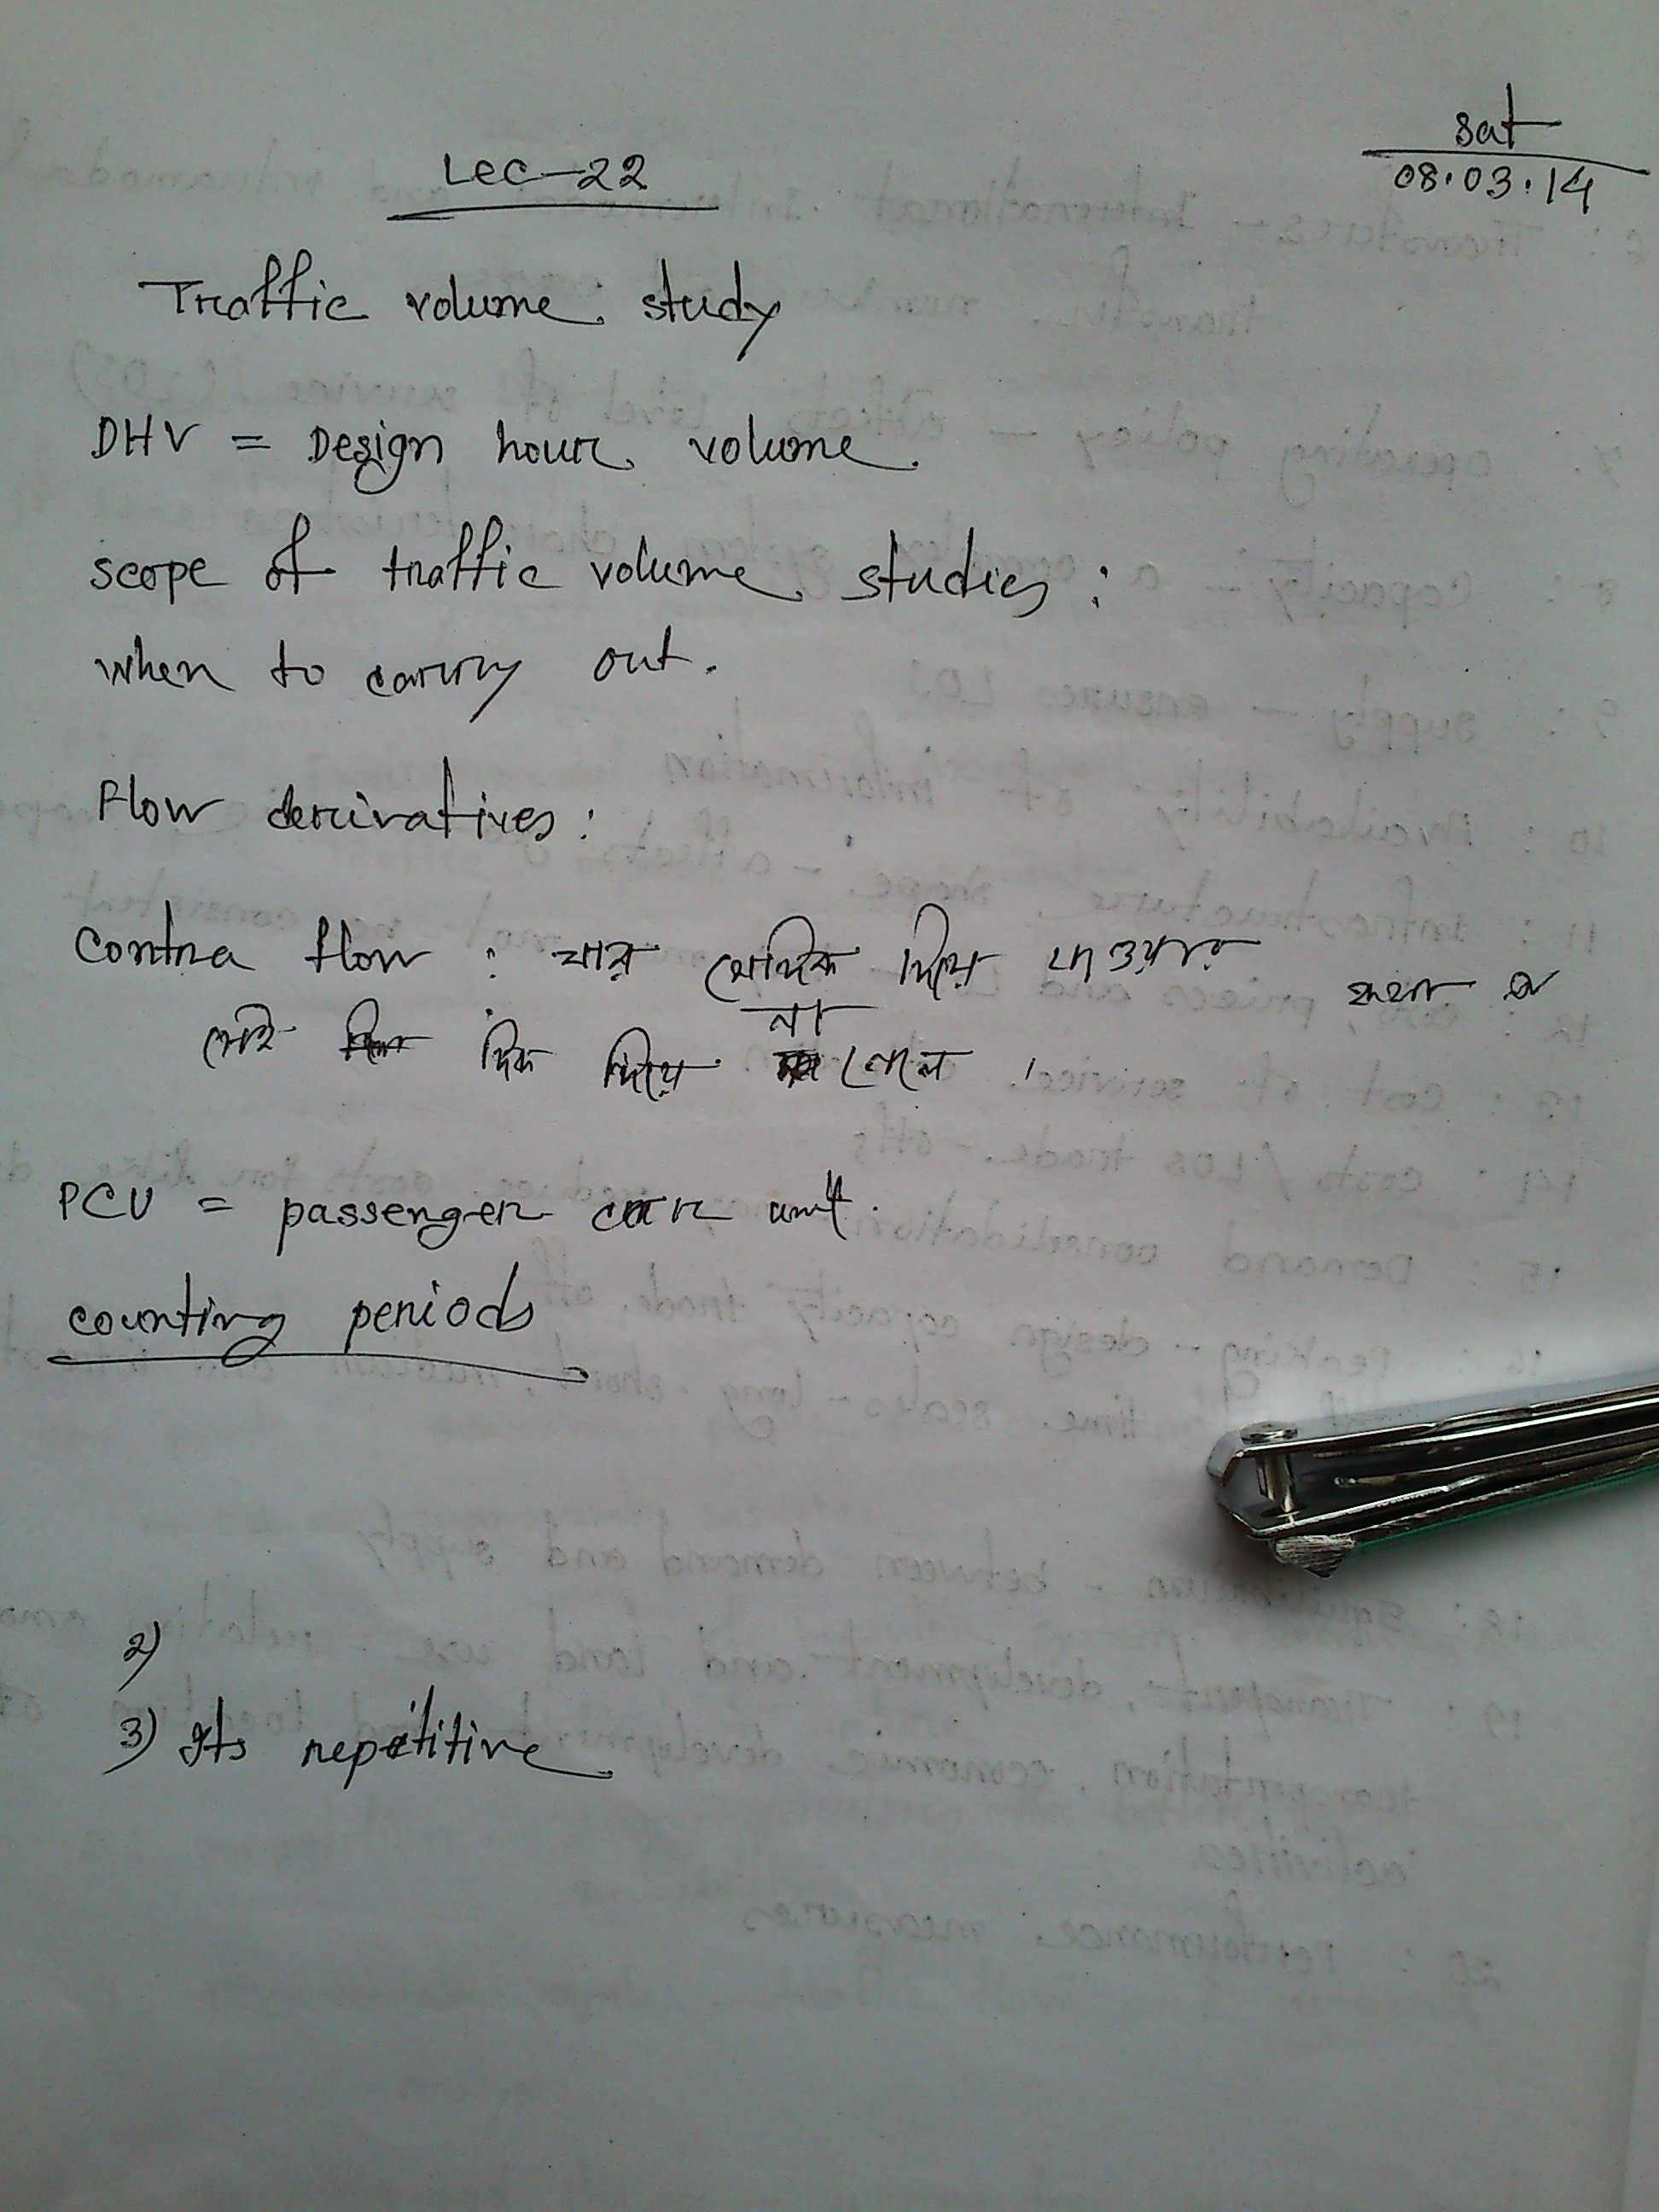 sat
08.03.14
Lec-22
Traffic volume study
DHV = Design hour volume.
scope of traffic volume studies :
when to carry out.
Flow derivatives :
Contra flow : যার যেদিক দিয়ে যাওয়ার
সেই দিক দিয়ে না গেলে ।
PCU = passenger car unit.
counting periods
2)
3) Its repetitive